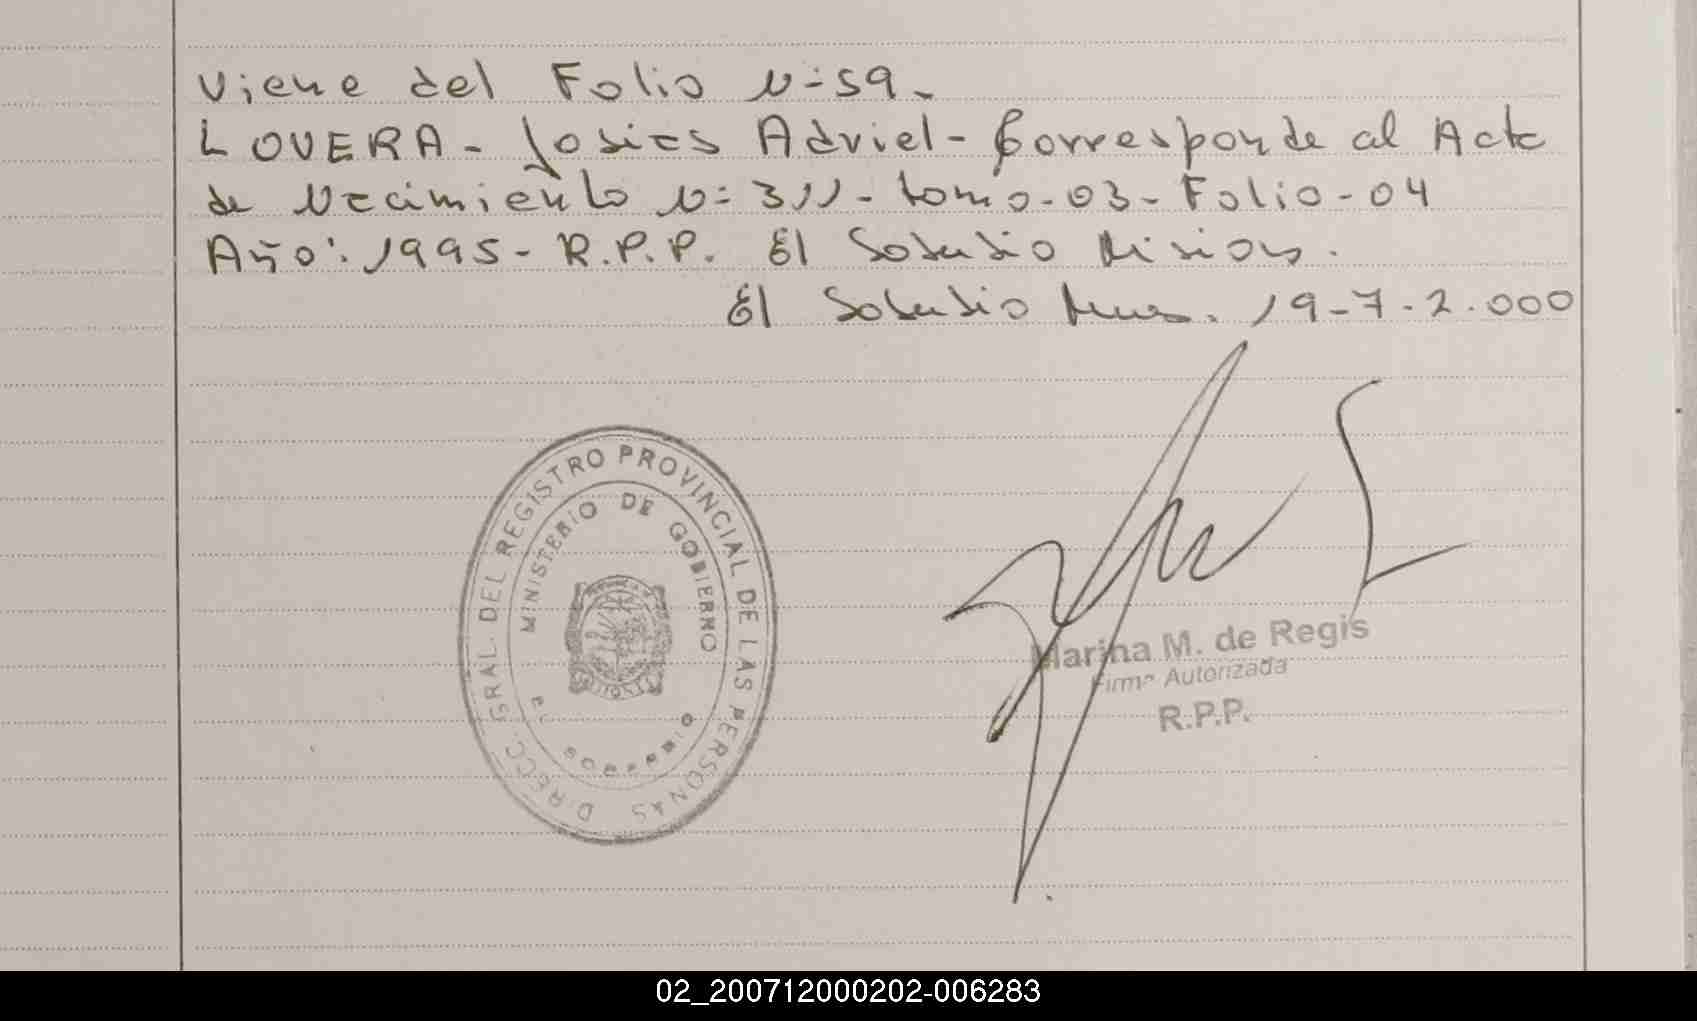 Viene del Folio Nº 59.
LOVERA - Josias Adriel - Corresponde al Acta
de Nacimiento Nº 311 - tomo - 03 - Folio - 04
Año: 1995 - R.P.P. El Soberbio Misiones.
El Soberbio Mnes. 19-7-2.000
DIRECC. GRAL. DEL REGISTRO PROVINCIAL DE LAS PERSONAS
MINISTERIO DE GOBIERNO
EL SOBERBIO
Marina M. de Regis
Firma Autorizada
R.P.P.
02_200712000202-006283